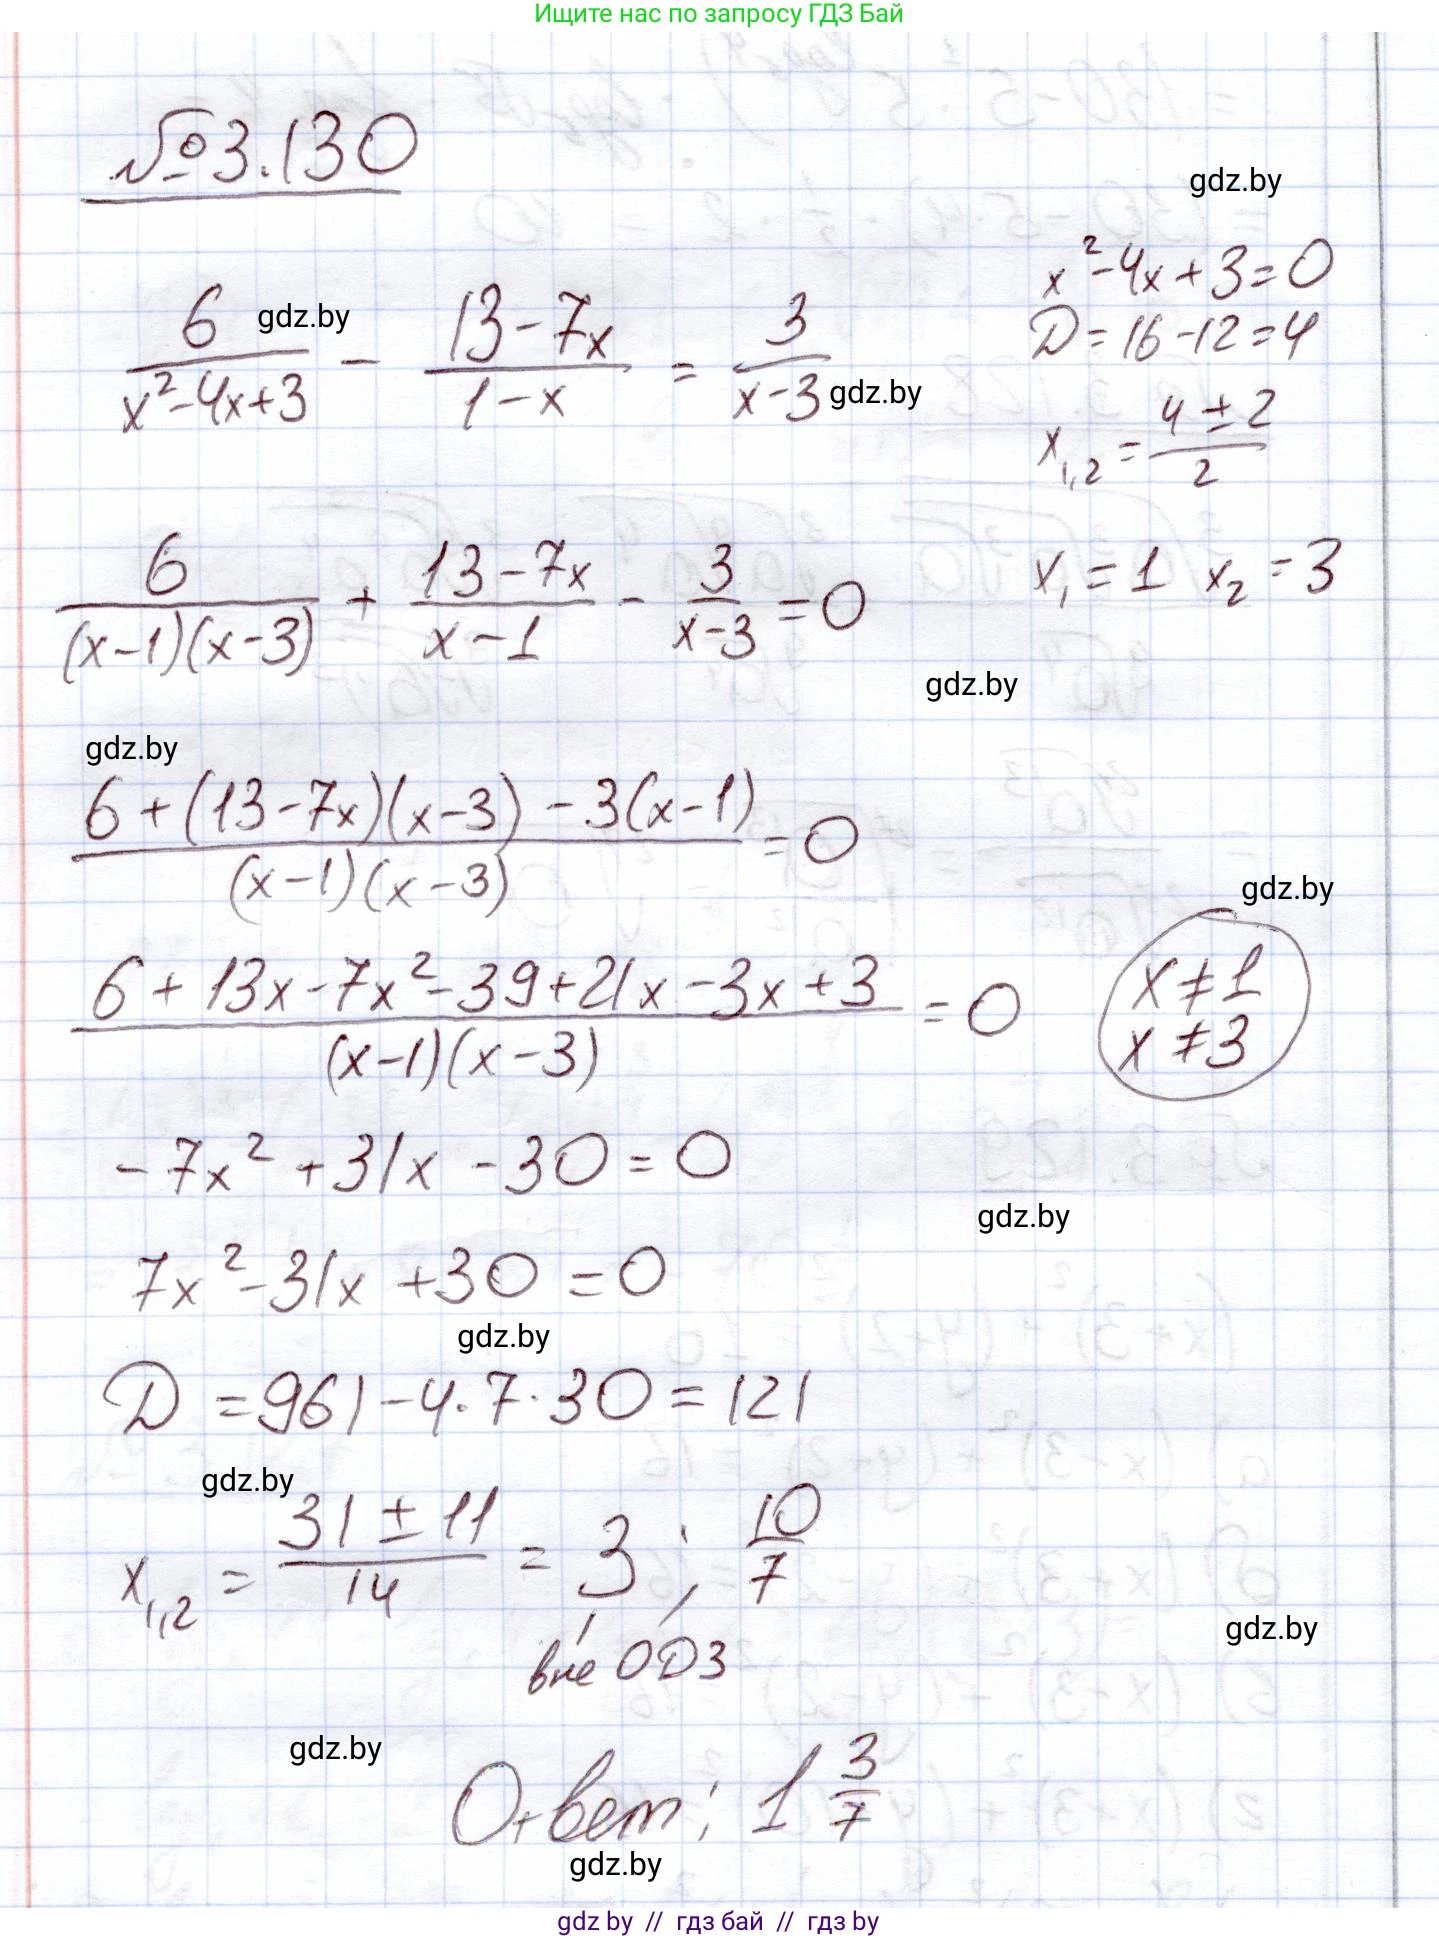 Ищите нас по запросу ГДЗ Бай
№3.130
gdz.by
6/(x²-4x+3) - (13-7x)/(1-x) = 3/(x-3)
gdz.by
gdz.by
x²-4x+3=0
D=16-12=4
x₁,₂ = (4±2)/2
x₁=1 x₂=3
6/((x-1)(x-3)) + (13-7x)/(x-1) - 3/(x-3) = 0
gdz.by
gdz.by
(6+(13-7x)(x-3)-3(x-1))/((x-1)(x-3)) = 0
gdz.by
(6+13x-7x²-39+21x-3x+3)/((x-1)(x-3)) = 0
x≠1
x≠3
-7x²+31x-30=0
gdz.by
7x²-31x+30=0
gdz.by
D=961-4·7·30=121
gdz.by
x₁,₂ = (31±11)/14 = 3; 10/7
вне ОДЗ
gdz.by
gdz.by
Ответ: 1 3/7
gdz.by
gdz by // гдз бай // гдз by